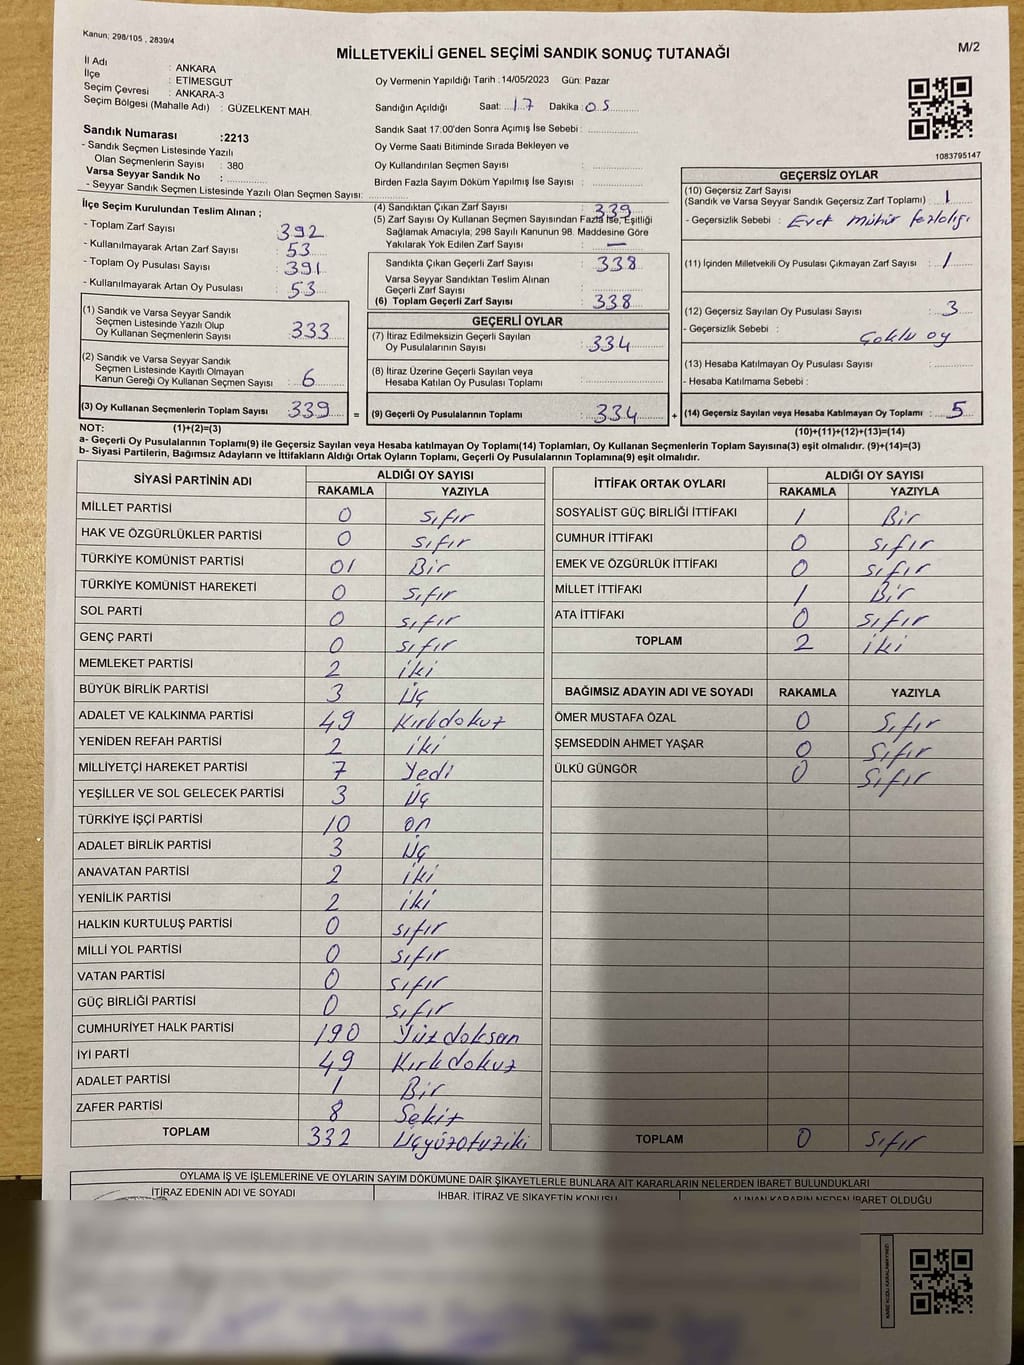 Kanun; 298/105 , 2839/4
MİLLETVEKİLİ GENEL SEÇİMİ SANDIK SONUÇ TUTANAĞI
M/2
İl Adı : ANKARA
İlçe : ETİMESGUT
Seçim Çevresi : ANKARA-3
Seçim Bölgesi (Mahalle Adı) : GÜZELKENT MAH.
Oy Vermenin Yapıldığı Tarih : 14/05/2023 Gün: Pazar
Sandığın Açıldığı Saat: 17 Dakika: 05
Sandık Saat 17:00'den Sonra Açımış İse Sebebi :
Oy Verme Saati Bitiminde Sırada Bekleyen ve
Oy Kullandırılan Seçmen Sayısı :
Birden Fazla Sayım Döküm Yapılmış İse Sayısı :
1083795147
Sandık Numarası :2213
- Sandık Seçmen Listesinde Yazılı
Olan Seçmenlerin Sayısı : 380
Varsa Seyyar Sandık No :
- Seyyar Sandık Seçmen Listesinde Yazılı Olan Seçmen Sayısı:
İlçe Seçim Kurulundan Teslim Alınan ;
- Toplam Zarf Sayısı : 392
- Kullanılmayarak Artan Zarf Sayısı : 53
- Toplam Oy Pusulası Sayısı : 391
- Kullanılmayarak Artan Oy Pusulası : 53
(1) Sandık ve Varsa Seyyar Sandık
Seçmen Listesinde Yazılı Olup
Oy Kullanan Seçmenlerin Sayısı : 333
(2) Sandık ve Varsa Seyyar Sandık
Seçmen Listesinde Kayıtlı Olmayan
Kanun Gereği Oy Kullanan Seçmen Sayısı : 6
(3) Oy Kullanan Seçmenlerin Toplam Sayısı : 339 =
(4) Sandıktan Çıkan Zarf Sayısı : 339
(5) Zarf Sayısı Oy Kullanan Seçmen Sayısından Fazla İse, Eşitliği
Sağlamak Amacıyla, 298 Sayılı Kanunun 98. Maddesine Göre
Yakılarak Yok Edilen Zarf Sayısı : —
Sandıkta Çıkan Geçerli Zarf Sayısı : 338
Varsa Seyyar Sandıktan Teslim Alınan
Geçerli Zarf Sayısı :
(6) Toplam Geçerli Zarf Sayısı : 338
GEÇERLİ OYLAR
(7) İtiraz Edilmeksizin Geçerli Sayılan
Oy Pusulalarının Sayısı : 334
(8) İtiraz Üzerine Geçerli Sayılan veya
Hesaba Katılan Oy Pusulası Toplamı :
(9) Geçerli Oy Pusulalarının Toplamı : 334 +
GEÇERSİZ OYLAR
(10) Geçersiz Zarf Sayısı
(Sandık ve Varsa Seyyar Sandık Geçersiz Zarf Toplamı) : 1
- Geçersizlik Sebebi : Evet mühür fazlalığı
(11) İçinden Milletvekili Oy Pusulası Çıkmayan Zarf Sayısı : 1
(12) Geçersiz Sayılan Oy Pusulası Sayısı : 3
- Geçersizlik Sebebi : Çoklu oy
(13) Hesaba Katılmayan Oy Pusulası Sayısı :
- Hesaba Katılmama Sebebi :
(14) Geçersiz Sayılan veya Hesaba Katılmayan Oy Toplamı : 5
NOT: (1)+(2)=(3) (10)+(11)+(12)+(13)=(14)
a- Geçerli Oy Pusulalarının Toplamı(9) ile Geçersiz Sayılan veya Hesaba katılmayan Oy Toplamı(14) Toplamları, Oy Kullanan Seçmenlerin Toplam Sayısına(3) eşit olmalıdır. (9)+(14)=(3)
b- Siyasi Partilerin, Bağımsız Adayların ve İttifakların Aldığı Ortak Oyların Toplamı, Geçerli Oy Pusulalarının Toplamına(9) eşit olmalıdır.
SİYASİ PARTİNİN ADI ALDIĞI OY SAYISI
RAKAMLA YAZIYLA
MİLLET PARTİSİ 0 Sıfır
HAK VE ÖZGÜRLÜKLER PARTİSİ 0 Sıfır
TÜRKİYE KOMÜNİST PARTİSİ 01 Bir
TÜRKİYE KOMÜNİST HAREKETİ 0 Sıfır
SOL PARTİ 0 Sıfır
GENÇ PARTİ 0 Sıfır
MEMLEKET PARTİSİ 2 iki
BÜYÜK BİRLİK PARTİSİ 3 Üç
ADALET VE KALKINMA PARTİSİ 49 Kırkdokuz
YENİDEN REFAH PARTİSİ 2 iki
MİLLİYETÇİ HAREKET PARTİSİ 7 Yedi
YEŞİLLER VE SOL GELECEK PARTİSİ 3 Üç
TÜRKİYE İŞÇİ PARTİSİ 10 on
ADALET BİRLİK PARTİSİ 3 Üç
ANAVATAN PARTİSİ 2 iki
YENİLİK PARTİSİ 2 iki
HALKIN KURTULUŞ PARTİSİ 0 sıfır
MİLLİ YOL PARTİSİ 0 sıfır
VATAN PARTİSİ 0 sıfır
GÜÇ BİRLİĞİ PARTİSİ 0 sıfır
CUMHURİYET HALK PARTİSİ 190 Yüzdoksan
İYİ PARTİ 49 Kırkdokuz
ADALET PARTİSİ 1 Bir
ZAFER PARTİSİ 8 Sekiz
TOPLAM 332 Üçyüzotuziki
İTTİFAK ORTAK OYLARI ALDIĞI OY SAYISI
RAKAMLA YAZIYLA
SOSYALİST GÜÇ BİRLİĞİ İTTİFAKI 1 Bir
CUMHUR İTTİFAKI 0 sıfır
EMEK VE ÖZGÜRLÜK İTTİFAKI 0 sıfır
MİLLET İTTİFAKI 1 Bir
ATA İTTİFAKI 0 sıfır
TOPLAM 2 iki
BAĞIMSIZ ADAYIN ADI VE SOYADI RAKAMLA YAZIYLA
ÖMER MUSTAFA ÖZAL 0 Sıfır
ŞEMSEDDİN AHMET YAŞAR 0 Sıfır
ÜLKÜ GÜNGÖR 0 Sıfır
TOPLAM 0 Sıfır
OYLAMA İŞ VE İŞLEMLERİNE VE OYLARIN SAYIM DÖKÜMÜNE DAİR ŞİKAYETLERLE BUNLARA AİT KARARLARIN NELERDEN İBARET BULUNDUKLARI
İTİRAZ EDENİN ADI VE SOYADI İHBAR, İTİRAZ VE ŞİKAYETİN KONUSU ALINAN KARARIN NEDEN İBARET OLDUĞU